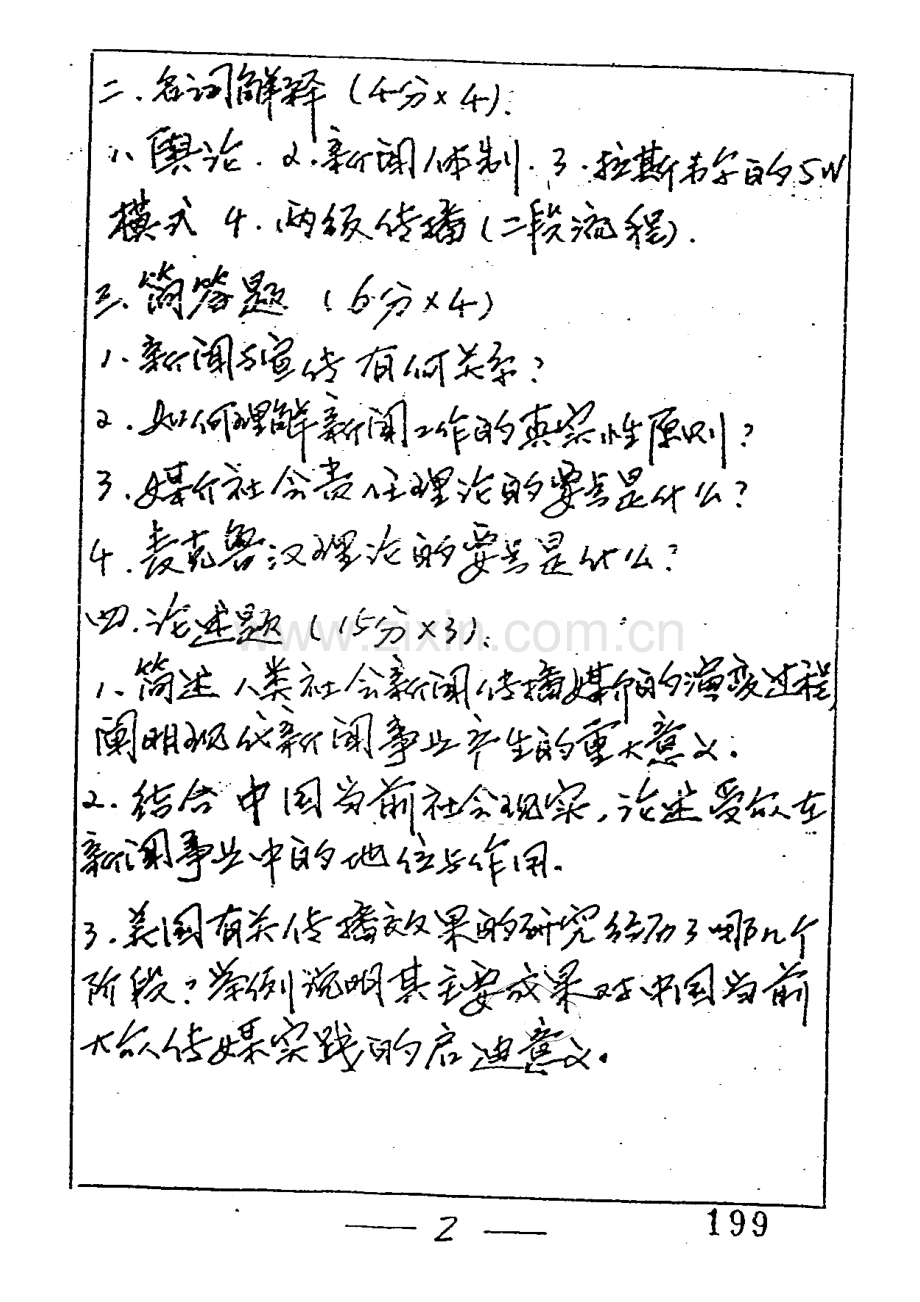 二、名词解释(4分×4):
1、舆论. 2、新闻体制. 3、拉斯韦尔的5W
模式 4、两级传播(二段流程).
三、简答题 (6分×4)
1、新闻与宣传有何关系?
2、如何理解新闻工作的真实性原则?
3、媒介社会责任理论的要点是什么?
4、麦克鲁汉理论的要点是什么?
四、论述题 (15分×3):
www.zixin.com.cn
1、简述人类社会新闻传播媒介的演变过程,
阐明现代新闻事业产生的重大意义。
2、结合中国当前社会现实,论述受众在
新闻事业中的地位与作用。
3、美国有关传播效果的研究经历了哪几个
阶段?举例说明其主要成果对中国当前
大众传媒实践的启迪意义。
— 2 —
199